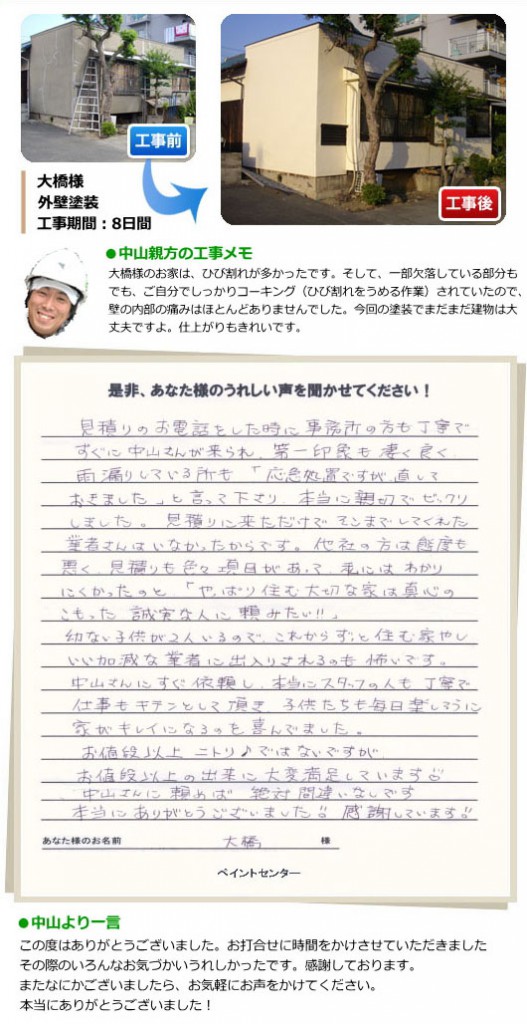 工事前
工事後
大橋様
外壁塗装
工事期間：8日間
●中山親方の工事メモ
大橋様のお家は、ひび割れが多かったです。そして、一部欠落している部分も
でも、ご自分でしっかりコーキング（ひび割れをうめる作業）されていたので、
壁の内部の痛みはほとんどありませんでした。今回の塗装でまだまだ建物は大
丈夫ですよ。仕上がりもきれいです。
是非、あなた様のうれしい声を聞かせてください！
見積りのお電話をした時に事務所の方も丁寧で
すぐに中山さんが来られ、第一印象も凄く良く、
雨漏りしている所も「応急処置ですが、直して
おきました」と言って下さり、本当に親切でビックリ
しました。見積りに来ただけでそこまでしてくれた
業者さんはいなかったからです。他社の方は態度も
悪く、見積りも色々項目があって、私にはわかり
にくかったのと、「やっぱり住む大切な家は真心の
こもった誠実な人に頼みたい!!」
幼ない子供が2人いるので、これからずっと住む家やし
いい加減な業者に出入りされるのも怖いです。
中山さんにすぐ依頼し、本当にスタッフの人も丁寧で
仕事もキチンとして頂き、子供たちも毎日楽しそうに
家がキレイになるのを喜んでました。
お値段以上ニトリ♪ではないですが、
お値段以上の出来に大変満足しています
中山さんに頼めば絶対間違いなしです
本当にありがとうございました!! 感謝しています!!
あなた様のお名前 大橋 様
ペイントセンター
●中山より一言
この度はありがとうございました。お打合せに時間をかけさせていただきました
その際のいろんなお気づかいうれしかったです。感謝しております。
またなにかございましたら、お気軽にお声をかけてください。
本当にありがとうございました！